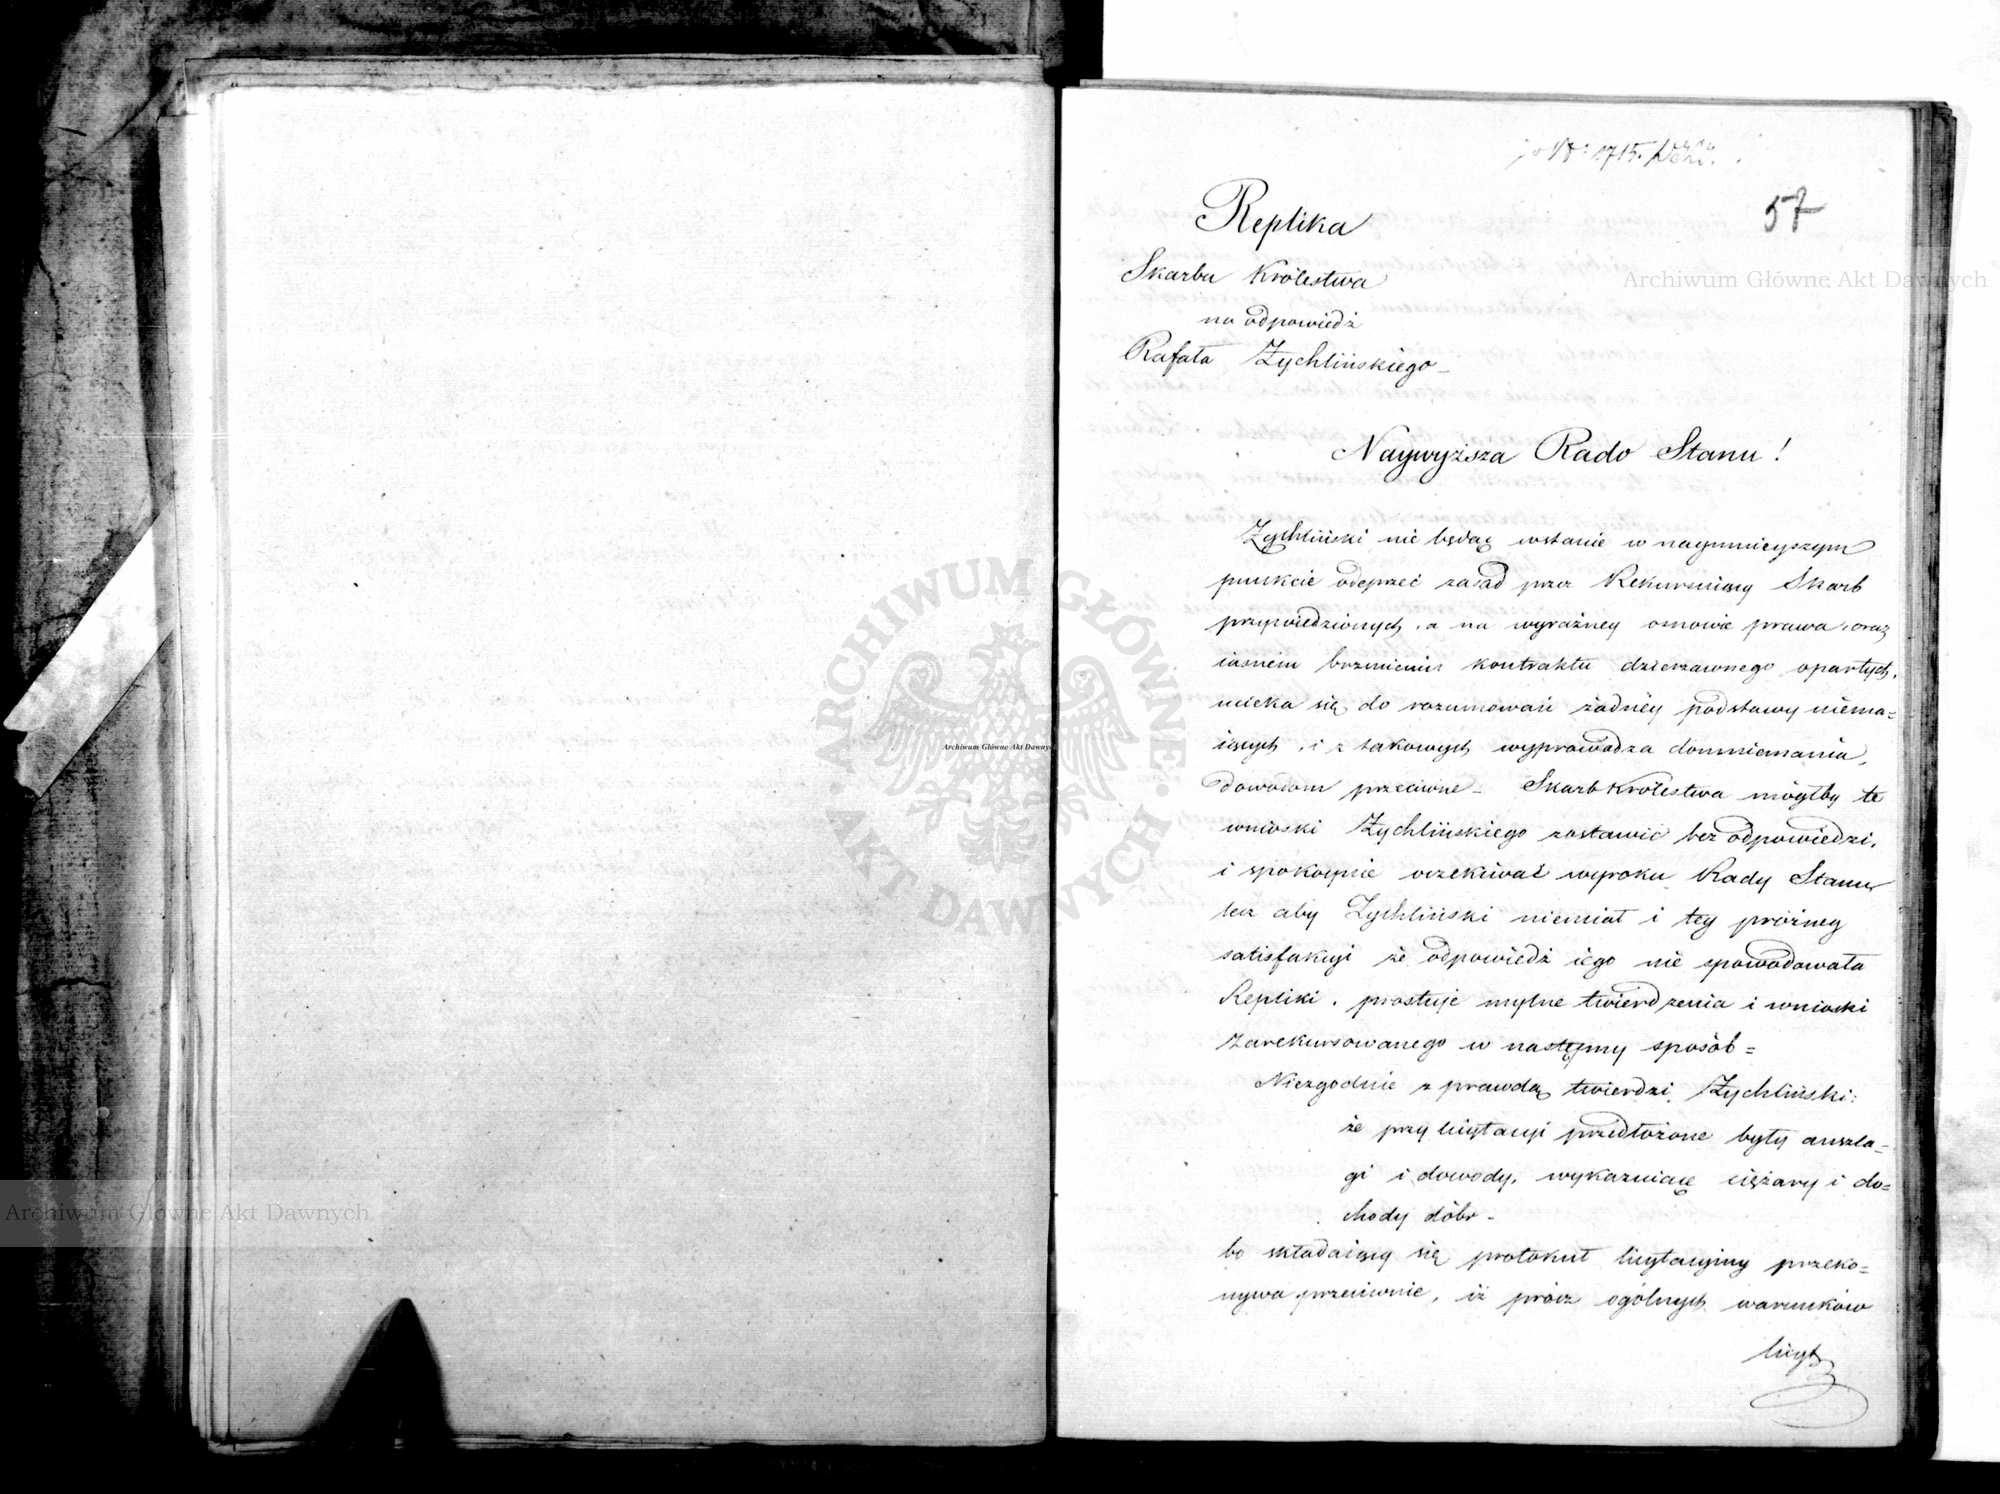 N° 1715.
57
Replika
Skarbu Królestwa
na odpowiedź
Rafała Zychlińskiego
Naywyższa Rado Stanu!
Zychliński nie będąc wstanie w naymnieyszym
punkcie odeprzeć zasad przez Rekursuiący Skarb
przywiedzionych, a na wyraźney osnowie prawa, oraz
iasnem brzmieniu kontraktu dzierzawnego opartych,
ucieka się do rozumowań żadnéy podstawy niema=
iących, i z takowych wyprowadza domniemania,
dowodom przeciwne_ Skarb Królestwa mógłby te
wnioski Zychlińskiego zostawić bez odpowiedzi,
i spokoynie oczekiwać wyroku Rady Stanu
lecz aby Zychliński niemiał i tey prózney
satisfakcyi że odpowiedź iego nie spowodowała
Repliki, prostuje mylne twierdzenia i wnioski
Zarekursowanego w następny sposób =
Niezgodnie z prawdą twierdzi Zychliński:
że przy licytacyi przedłożone były anszla=
gi i dowody, wykazuiące ciężary i do=
chody dóbr_
bo składaiący się protokuł licytacyiny przeko=
nywa przeciwnie, iż prócz ogólnych warunków
licyt
Archiwum Główne Akt Dawnych
Archiwum Główne Akt Dawnych
Archiwum Główne Akt Dawnych
ARCHIWUM GŁÓWNE AKT DAWNYCH